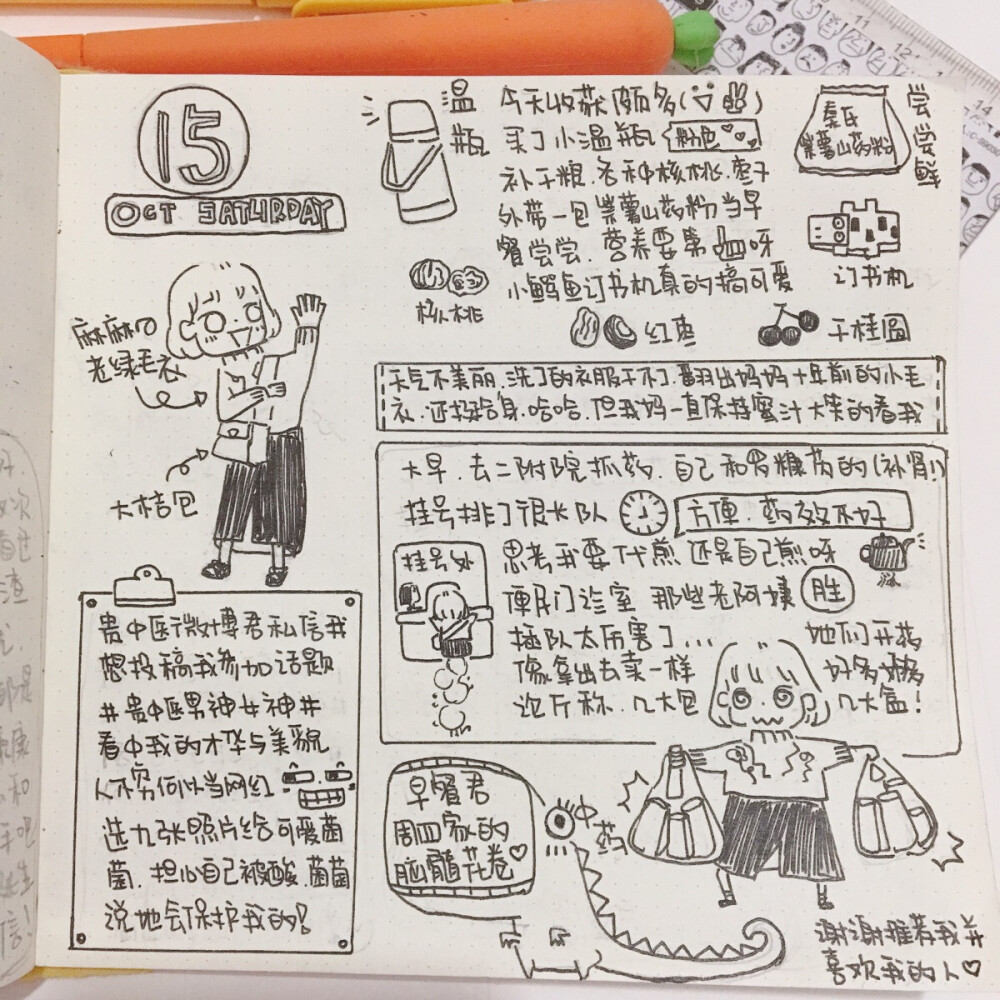 15
OCT SATURDAY
麻麻の
老绿毛衣
大桔包
温瓶
今天收获颇多
买了小温瓶 粉色
补干粮.各种核桃.枣子
外带一包紫薯山药粉当早
餐尝尝.营养要第一呀
小鳄鱼订书机真的搞可爱
秦氏
紫薯山药粉
尝尝鲜
订书机
核桃
红枣
干桂圆
天气不美丽.洗了的衣服干不了.翻出妈妈十年前的小毛
衣.还挺合身.哈哈.但我妈一直保持蜜汁大笑的看我
大早.去二附院抓药.自己和罗糠药的(补肾!)
挂号排了很长队
方便.药效不好
挂号处
思考我要代煎还是自己煎呀
便民门诊室 那些老阿姨 胜
插队太厉害了... 她们开药
像拿出去卖一样 好多好多
论斤称.几大包 几大盒!
中药
贵中医微博君私信我
想投稿我参加话题
#贵中医男神女神#
看中我的才华与美貌
人不穷何以当网红
选九张照片给可爱菌
菌.担心自己被酸.菌菌
说她会保护我的!
早餐君
周四家的
脑髓花卷
谢谢推荐我并
喜欢我的人
11
12
14